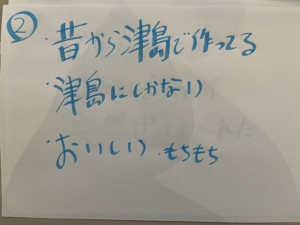 ②
・昔から津島で作ってる
・津島にしかない
・おいしい ・もちもち